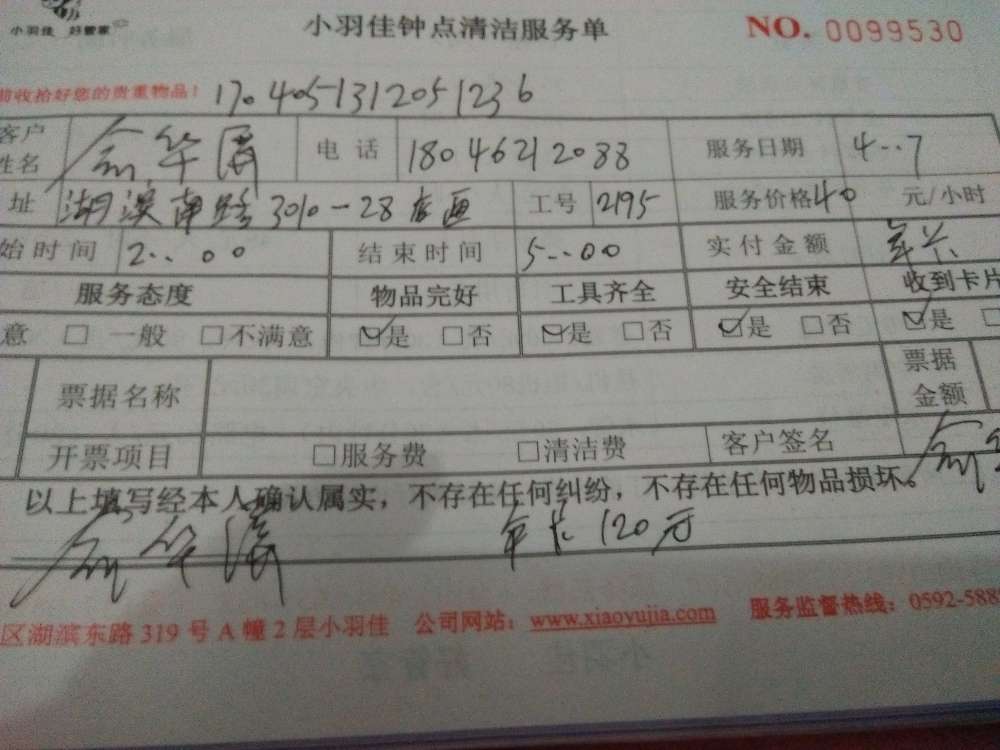 小羽佳 好管家
小羽佳钟点清洁服务单 NO. 0099530
前收拾好您的贵重物品! 170405131205 1236
客户姓名 俞华 电话 18046212088 服务日期 4..7
址 湖滨南路 3010-28 工号 2195 服务价格 40 元/小时
始时间 2..00 结束时间 5..00 实付金额 年卡
服务态度 物品完好 工具齐全 安全结束 收到卡片
意 □ 一般 □不满意 ☑是 □否 ☑是 □否 ☑是 □否 ☑是 □
票据名称 票据金额
开票项目 □服务费 □清洁费 客户签名 俞
以上填写经本人确认属实,不存在任何纠纷,不存在任何物品损坏。
俞华 年卡 120元
区湖滨东路 319 号 A 幢 2 层小羽佳 公司网站:www.xiaoyujia.com 服务监督热线:0592-588